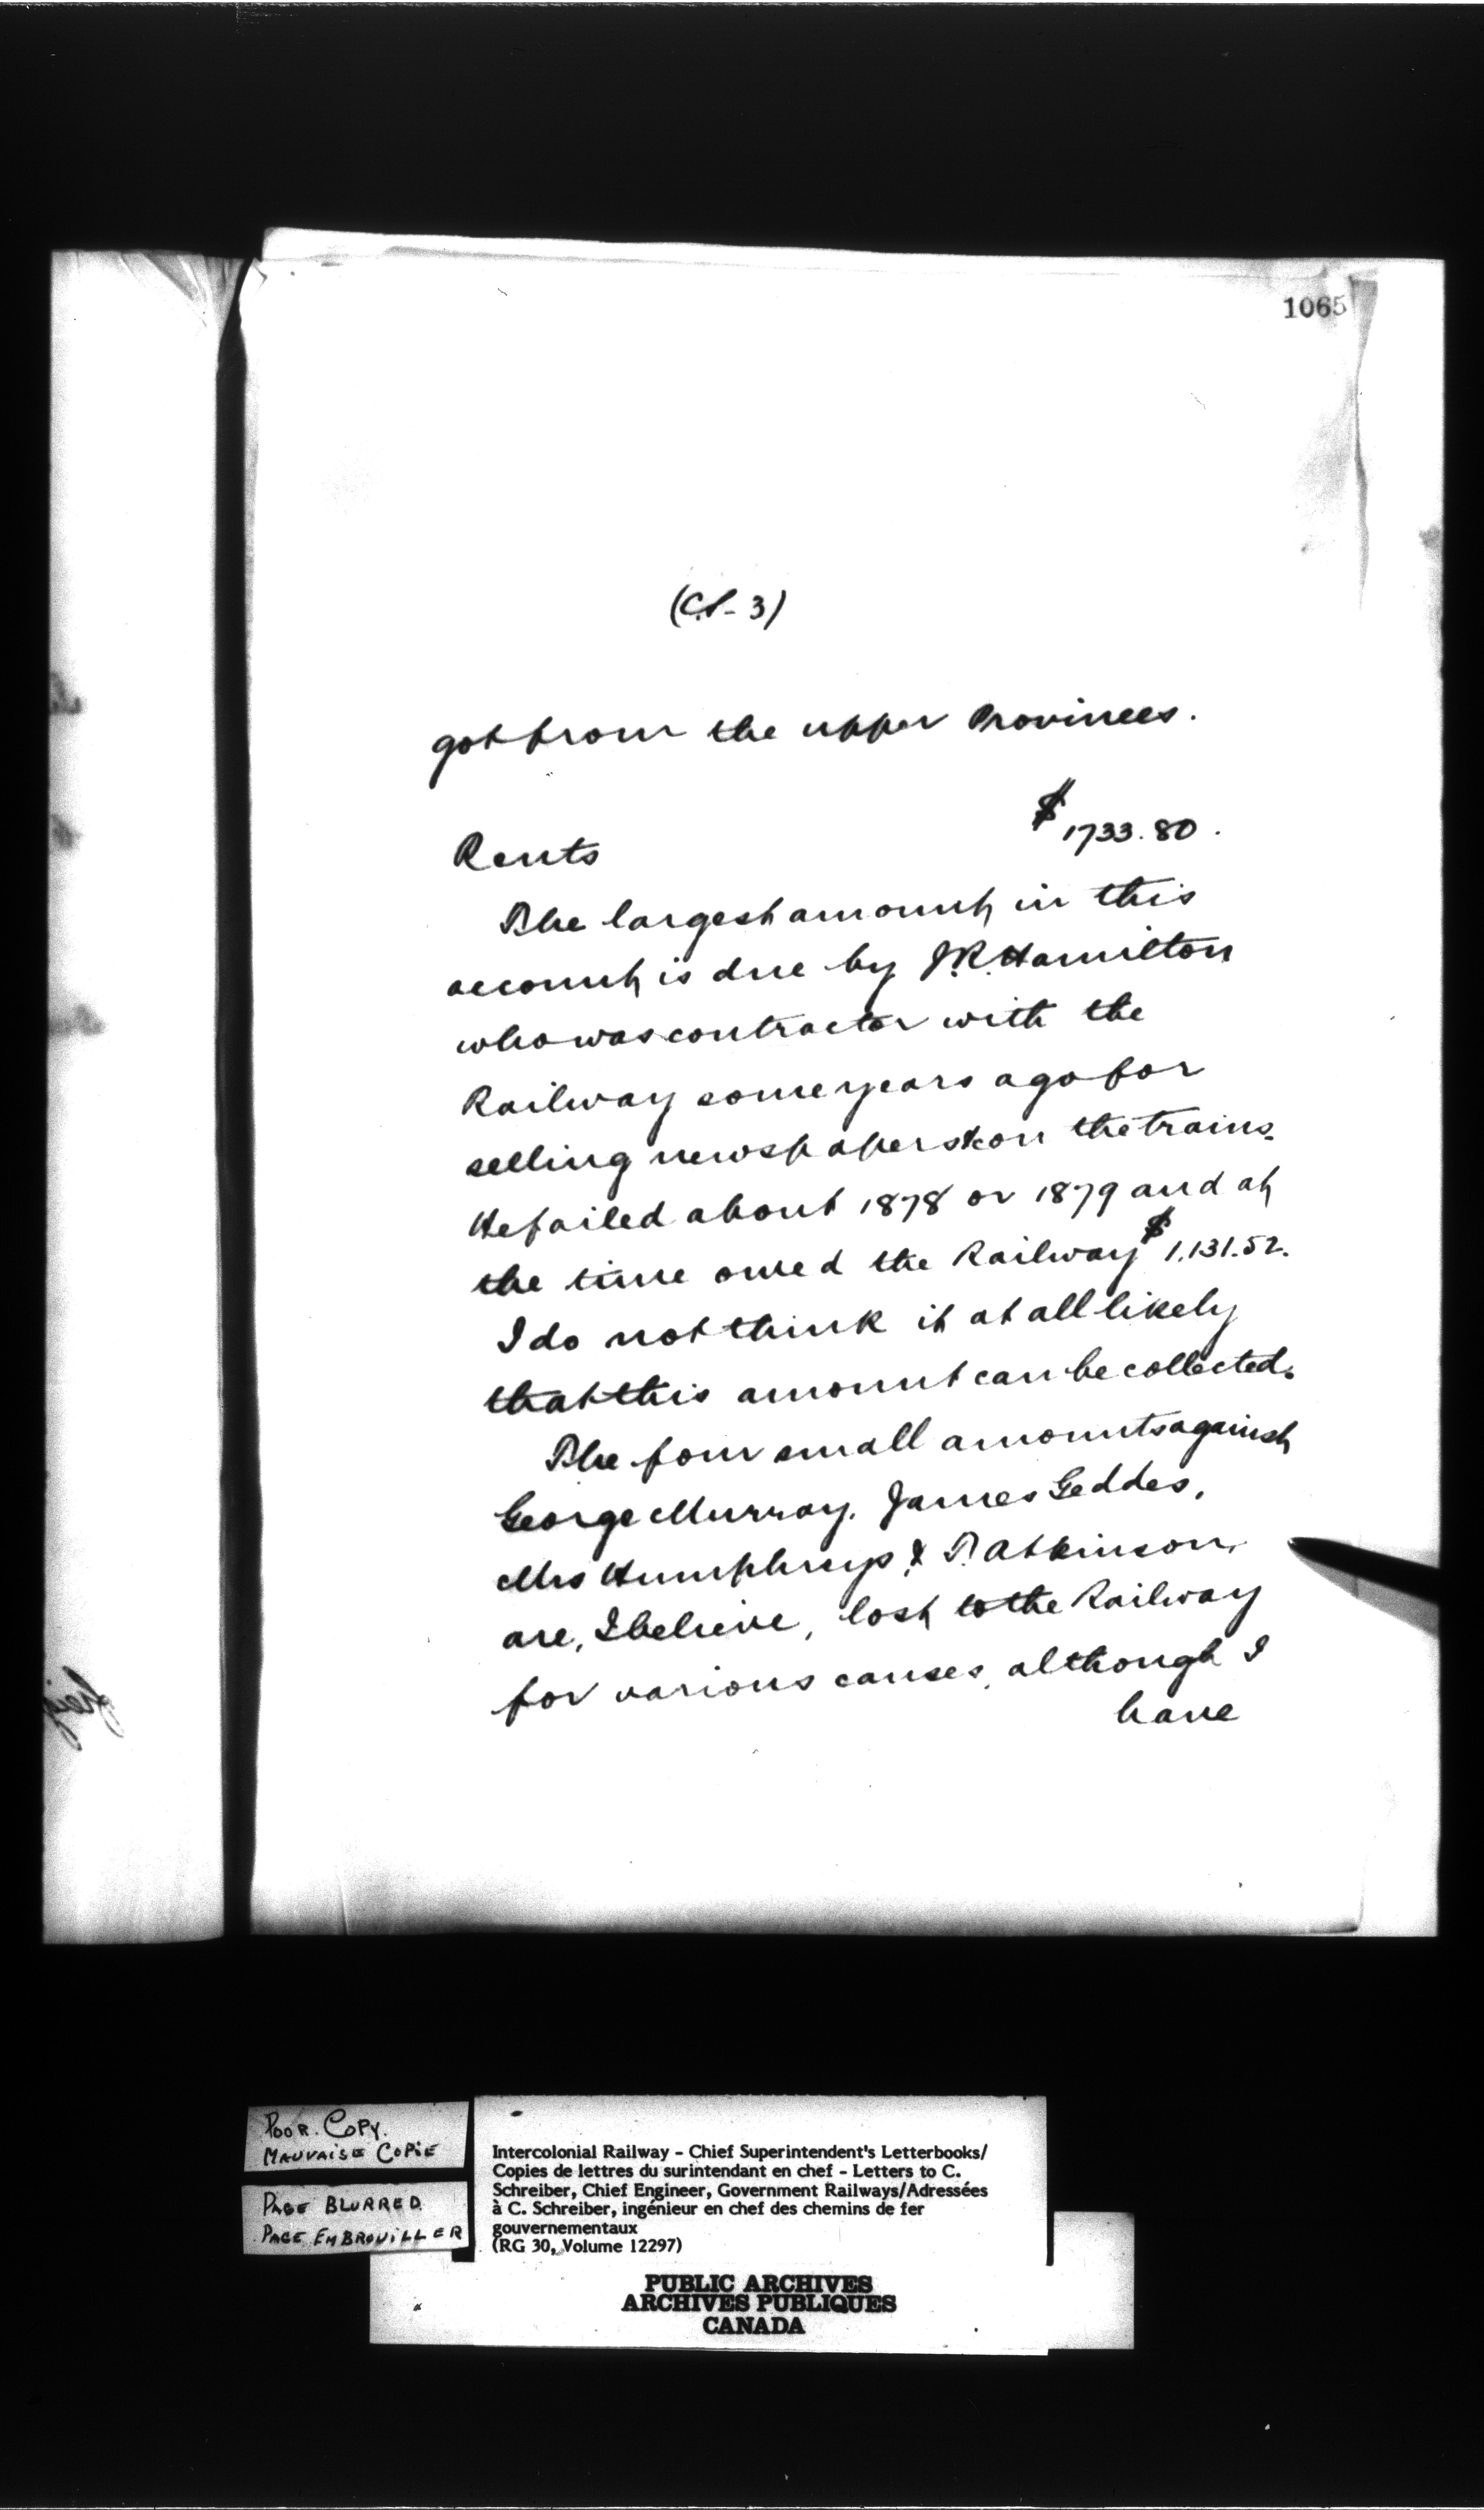 1065
(C.S-3)
got from the upper Provinces.
Rents $1733.80.
The largest amount in this
account is due by J.R. Hamilton
who was contractor with the
Railway some years ago for
selling newspapers &c on the trains.
He failed about 1878 or 1879 and at
the time owed the Railway $1,131.52.
I do not think it at all likely
that this amount can be collected.
The four small amounts against
George Murray, James Geddes,
Mrs Humphreys, & T. Atkinson,
are, I believe, lost to the Railway
for various causes, although I
have
POOR. COPY.
MAUVAISE COPIE
PAGE BLURRED
PAGE EMBROUILLER
Intercolonial Railway - Chief Superintendent's Letterbooks/
Copies de lettres du surintendant en chef - Letters to C.
Schreiber, Chief Engineer, Government Railways/Adressées
à C. Schreiber, ingénieur en chef des chemins de fer
gouvernementaux
(RG 30, Volume 12297)
PUBLIC ARCHIVES
ARCHIVES PUBLIQUES
CANADA